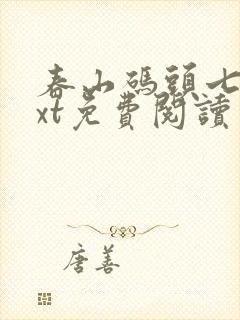 春山碼頭七
xt免費閱讀
唐善